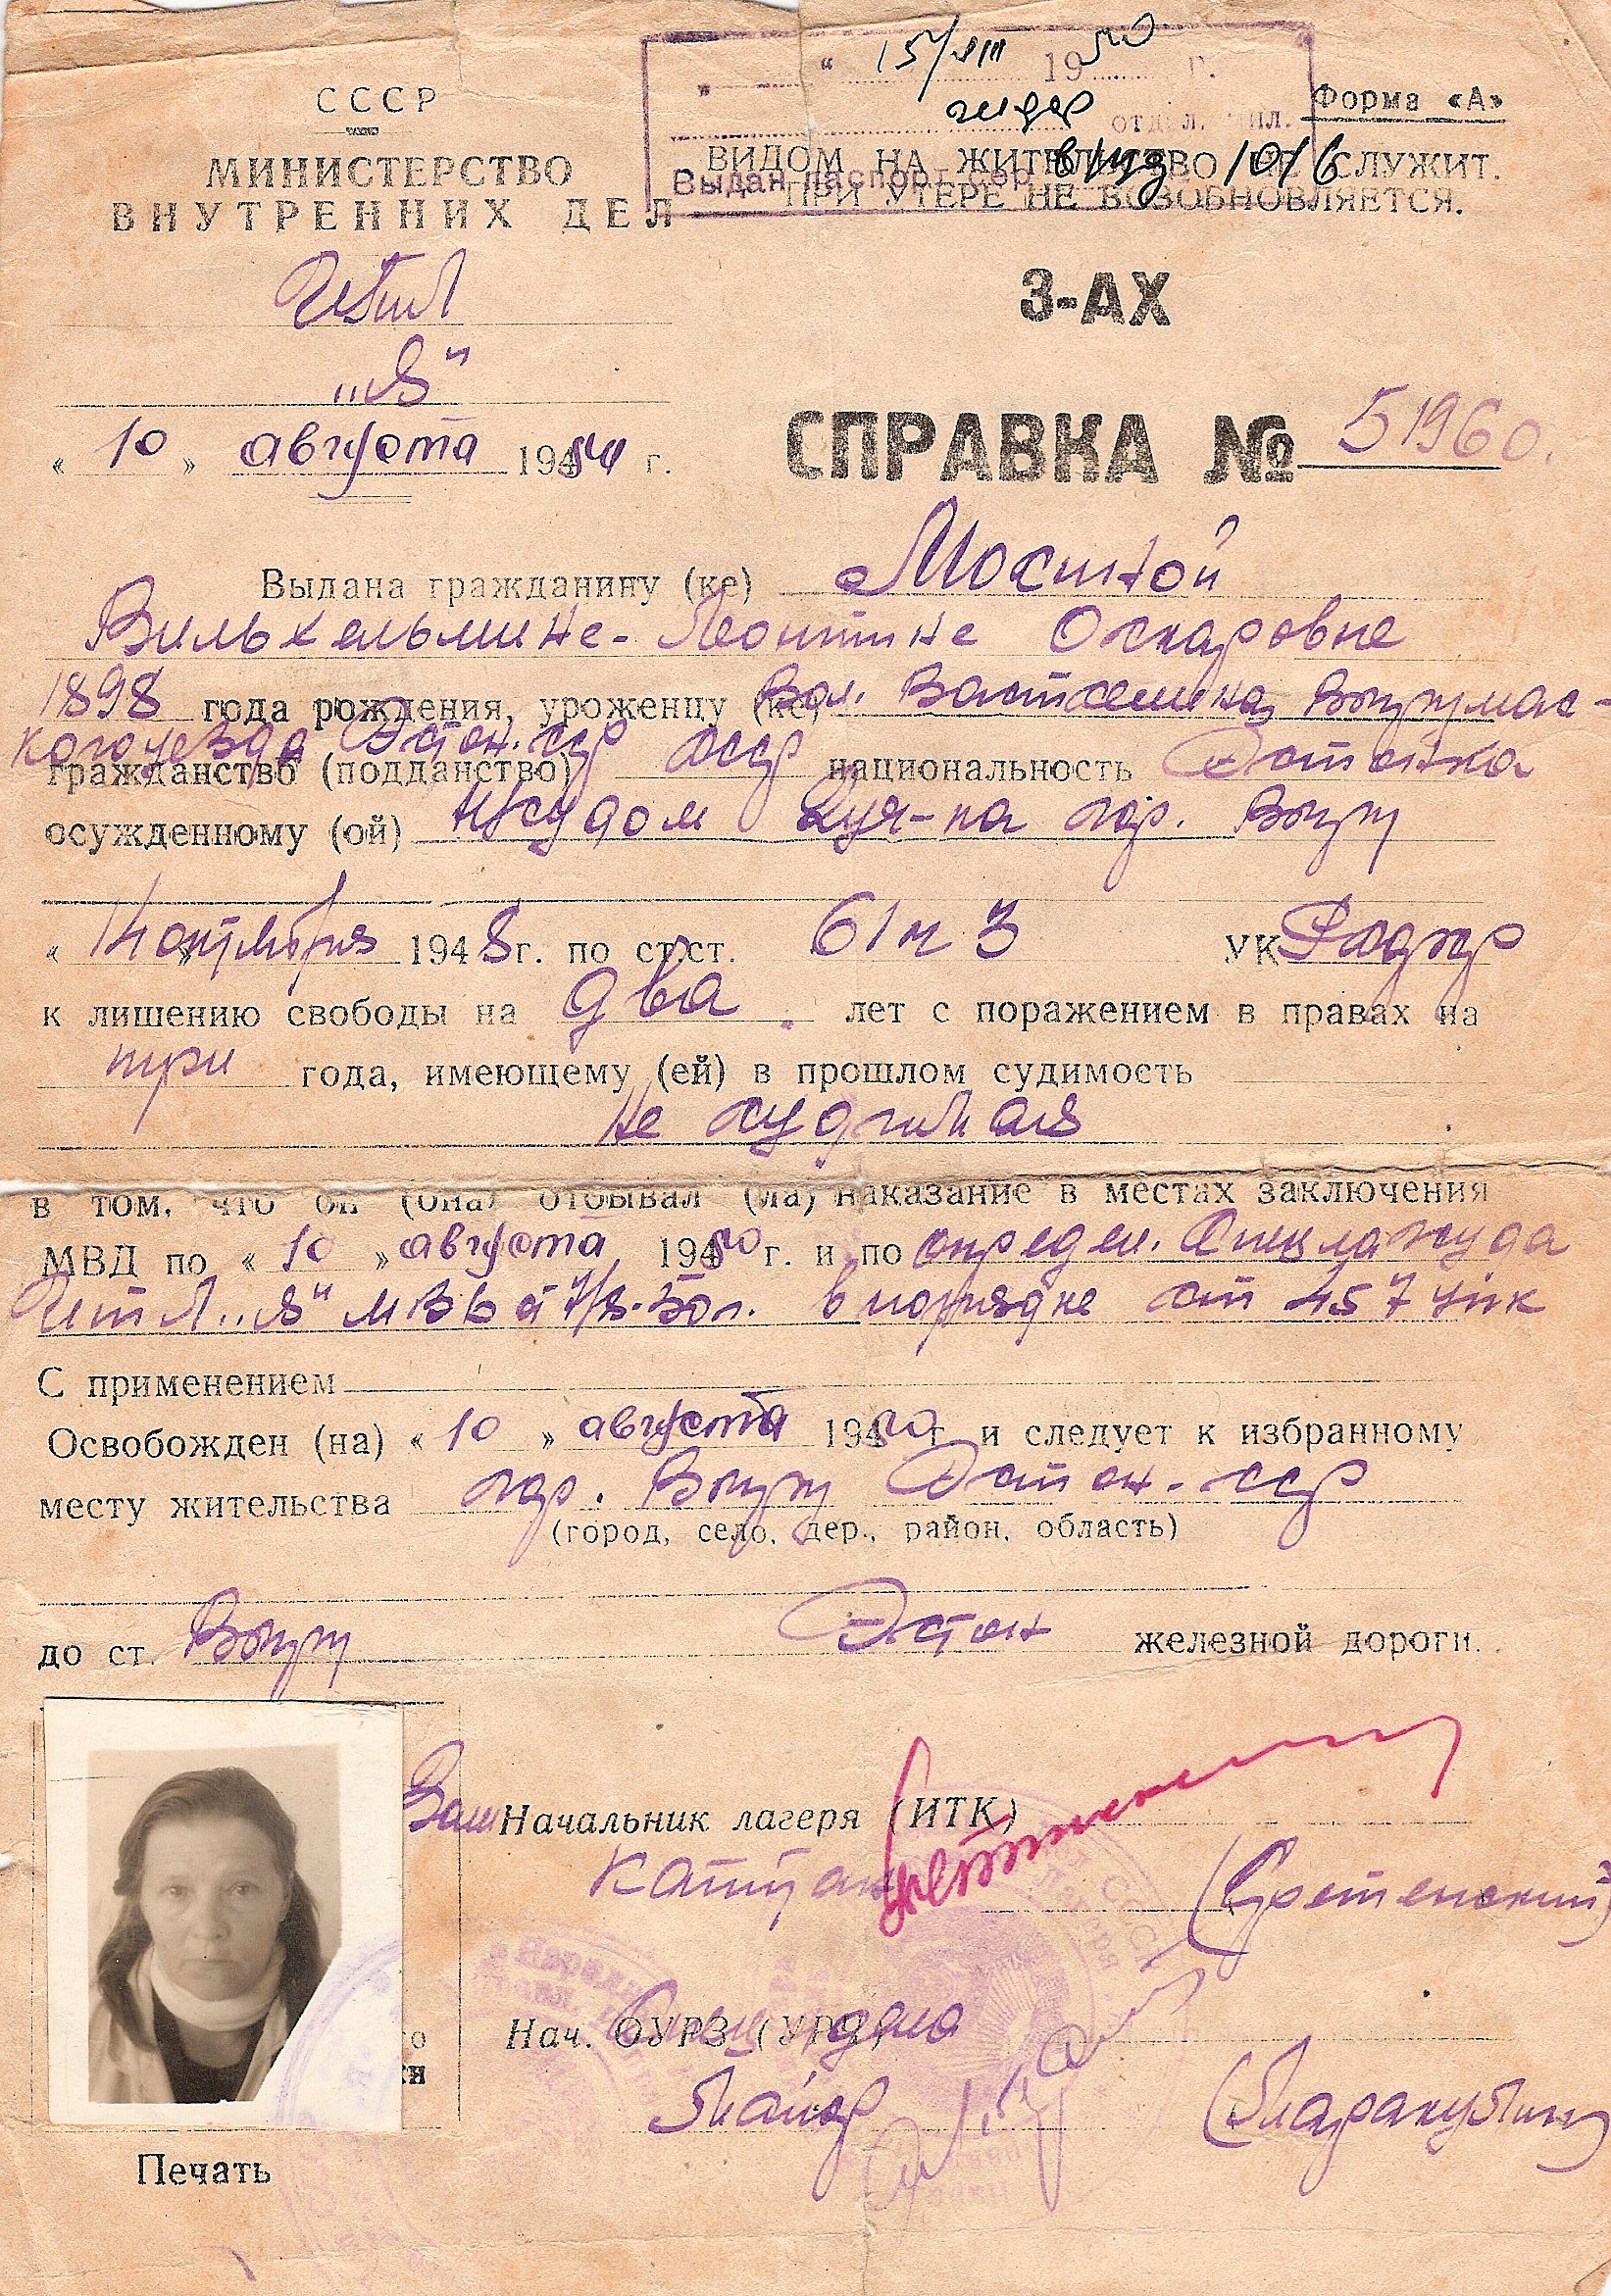 « 15/VIII 1950 г.
отдел. мил.
Форма «А»
СССР
МИНИСТЕРСТВО
ВНУТРЕННИХ ДЕЛ
ВИДОМ НА ЖИТЕЛЬСТВО НЕ СЛУЖИТ.
Выдан паспорт сер
ПРИ УТЕРЕ НЕ ВОЗОБНОВЛЯЕТСЯ.
ИТЛ
"Я"
3-АХ
« 10 » августа 1950 г.
СПРАВКА № 51960.
Выдана гражданину (ке) Мосиной
Вильхельмине-Леонтине Оскаровне
1898 года рождения, уроженцу (ке) Вол. Вастселинна, Вырумас-
кого уезда Эстон. сср
гражданство (подданство) ссср национальность Эстонка
осужденному (ой) Нарсудом 2 уч-ка гор. Выру
« 14 » октября 1948 г. по ст.ст. 61 ч 3 УК РСФСР
к лишению свободы на два лет с поражением в правах на
три года, имеющему (ей) в прошлом судимость
не судимая
в том, что он (она) отбывал (ла) наказание в местах заключения
МВД по « 10 » августа 1950 г. и по определ. Спецлагсуда
ИТЛ "Я" МВД от 7/8-50 г. в порядке ст 457 УПК
С применением
Освобожден (на) « 10 » августа 1950 г. и следует к избранному
месту жительства гор. Выру Эстон. сср
(город, село, дер., район, область)
до ст. Выру Эстон железной дороги.
Зам Начальник лагеря (ИТК)
Капитан (Сретенский)
Нач. ОУРЗ (УРЧ)
Майор
Печать